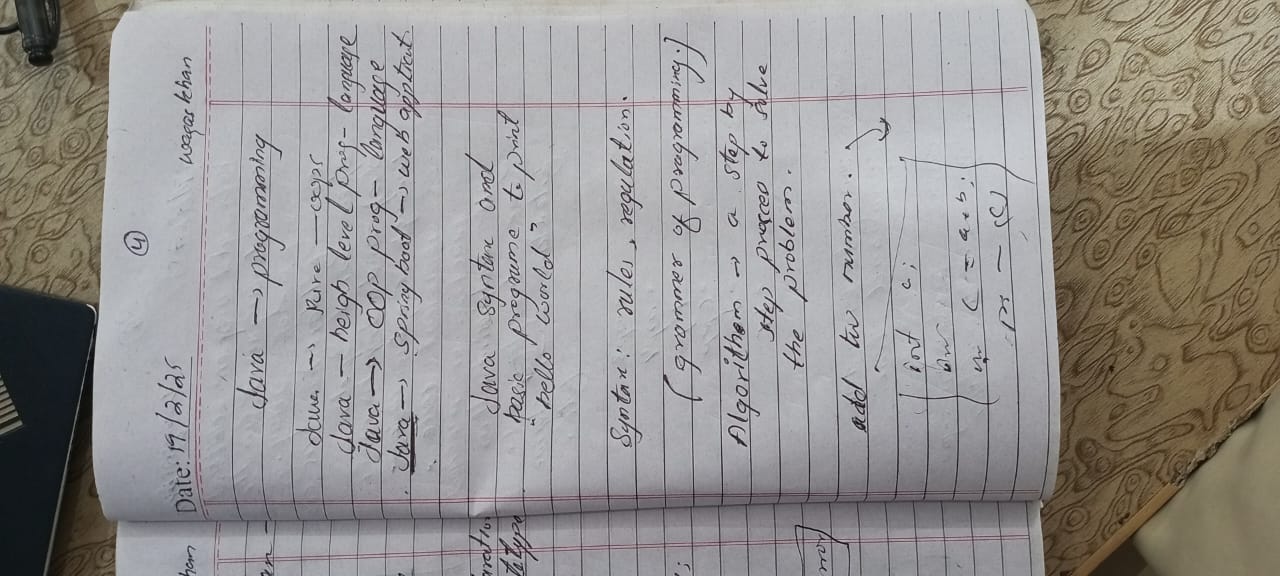 Date: 19/2/25
4
waqas khan
Java → programming
Java → Pure — oops
Java — heigh level prog - language
Java → OOP prog - langluage
Java → spring boot → web appticat
Java syntax and
basic programe to print
"hello world"
Syntax: rules, regulation.
(grammer of programming.)
Algorithem → a step by
step proceed to solve
the problem.
add tw number.
int c;
c = a+b;
(c)